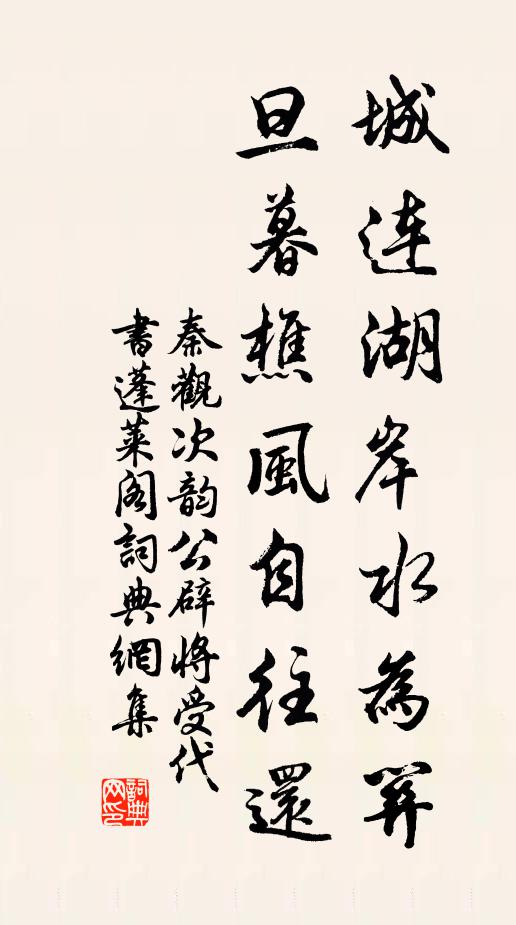 城連湖岸水為關
旦暮樵風自往還
秦觀次韵公辟將受代
書蓬萊閣詞典網集
詞典网印